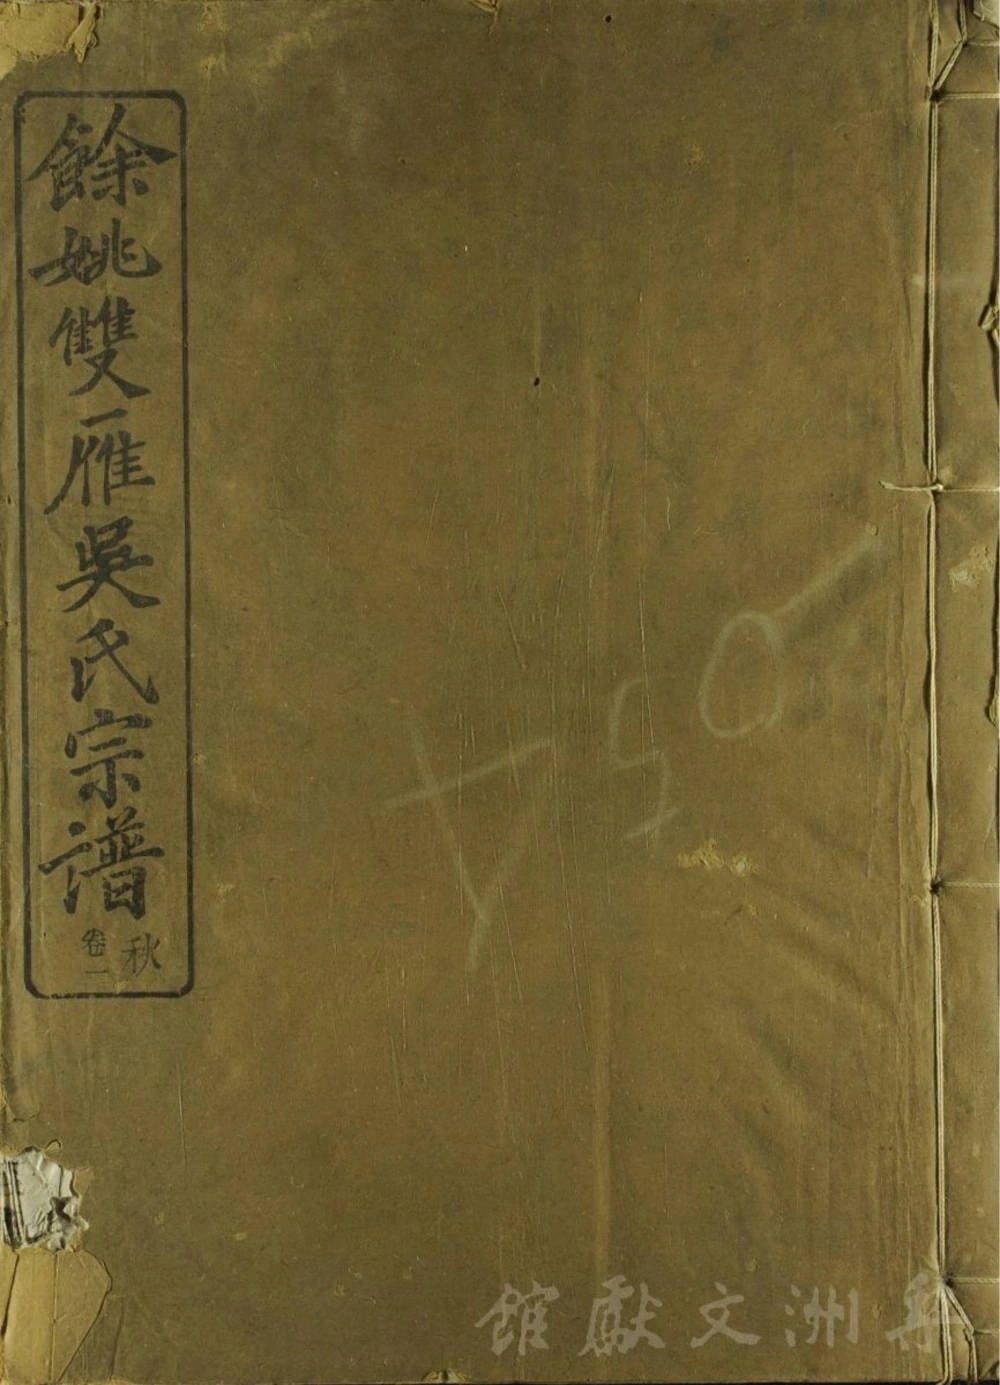 餘姚雙雁吳氏宗譜
秋
卷一
館獻文洲